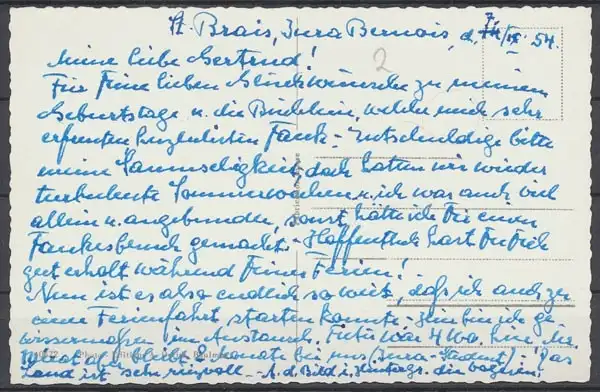 St. Brais, Jura Bernois, d. 7./IX. 54.
2
Meine liebe Gertrud!
Für Deine lieben Glückwünsche zu meinem
Geburtstage u. die Büchlein, welche mich sehr
erfreuten herzlichsten Dank – Entschuldige bitte
meine Saumseligkeit, doch hatten wir wieder
turbulente Sommerwochen u. ich war auch viel
allein u. angebunden, sonst hätte ich Dir einen
Dankesbesuch gemacht. – Hoffentlich hast Du Dich
gut erholt während Deiner Ferien!
Nun ist es also endlich so weit, daß ich auch zu
einer Ferienfahrt starten konnte – hier bin ich ge-
wissermaßen im Austausch.
war 4 Wochen
Monate bei uns (Jura-Student). Das
Land ist sehr reizvoll – A. d. Bild i. Hintergr. die Vogesen.